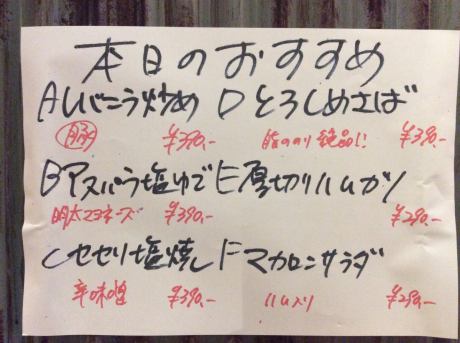 本日のおすすめ
Aレバニラ炒め Dとろしめさば
豚 ¥390.- 脂ののり絶品!! ¥390.-
Bアスパラ塩ゆで E厚切りハムカツ
明太マヨネーズ ¥390.- ¥290.-
Cセセリ塩焼し Fマカロニサラダ
辛味噌 ¥390.- ハム入り ¥290.-